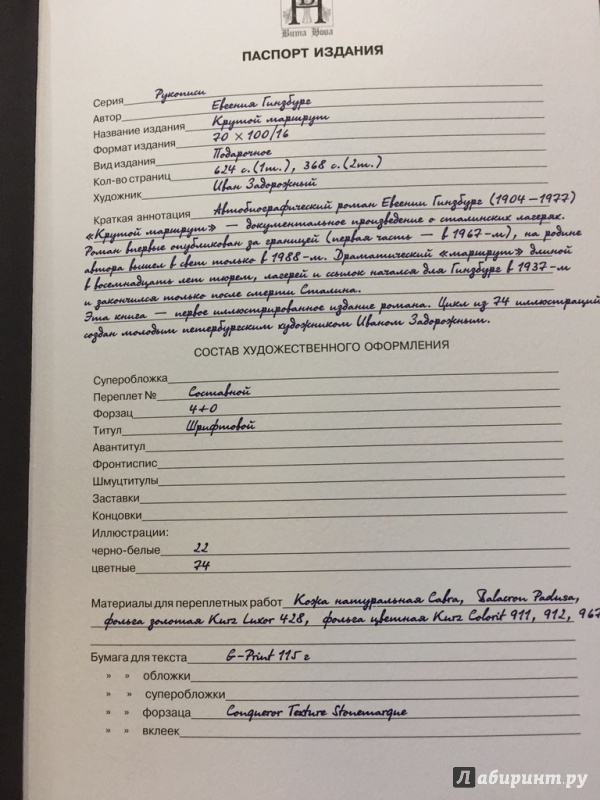 Вита Нова
ПАСПОРТ ИЗДАНИЯ
Серия Рукописи
Автор Евгения Гинзбург
Название издания Крутой маршрут
Формат издания 70 × 100/16
Вид издания Подарочное
Кол-во страниц 624 с.(1т.), 368 с.(2т.)
Художник Иван Задорожный
Краткая аннотация Автобиографический роман Евгении Гинзбург (1904 – 1977)
«Крутой маршрут» — документальное произведение о сталинских лагерях.
Роман впервые опубликован за границей (первая часть — в 1967-м), на родине
автора вышел в свет только в 1988-м. Драматический «маршрут» длиной
в восемнадцать лет тюрем, лагерей и ссылок начался для Гинзбург в 1937-м
и закончился только после смерти Сталина.
Эта книга — первое иллюстрированное издание романа. Цикл из 74 иллюстраций
создан молодым петербургским художником Иваном Задорожным.
СОСТАВ ХУДОЖЕСТВЕННОГО ОФОРМЛЕНИЯ
Суперобложка
Переплет № Составной
Форзац 4+0
Титул Шрифтовой
Авантитул
Фронтиспис
Шмуцтитулы
Заставки
Концовки
Иллюстрации:
черно-белые 22
цветные 74
Материалы для переплетных работ Кожа натуральная Cabra, Balacron Padusa,
фольга золотая Kurz Luxor 428, фольга цветная Kurz Colorit 911, 912, 967
Бумага для текста G-Print 115 г
» » обложки
» » суперобложки
» » форзаца Conqueror Texture Stonemarque
» » вклеек
Лабиринт.ру